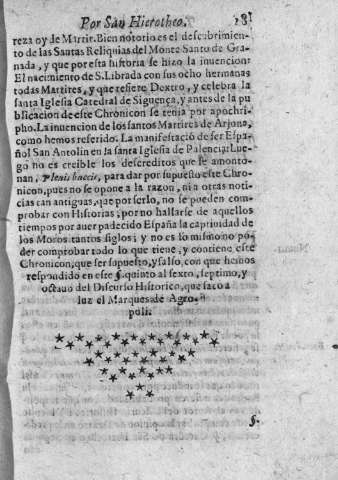 Por San Hierotheo. 181
reza oy de Martir. Bien notorio es el descubrimien-
to de las Santas Reliquias del Monte Santo de Gra-
nada, y que por esta historia se hizo la inuencion:
El nacimiento de S. Librada con sus ocho hermanas
todas Martires, y que refiere Dextro, y celebra la
santa Iglesia Catedral de Siguença, y antes de la pu
blicacion de este Chronicon se tenia por apochri-
pho. La inuencion de los santos Martires de Arjona,
como hemos referido. La manifestació de ser Espa-
ñol San Antolin en la santa Iglesia de Palencia: Lue-
go no es creible los descreditos que se amonto-
nan, plenis buccis, para dar por supuesto este Chro-
nicon, pues no se opone a la razon, ni a otras noti-
cias tan antiguas, que por serlo, no se pueden com-
probar con Historias, por no hallarse de aquellos
tiempos por auer padecido España la captiuidad de
los Moros tantos siglos; y no es lo mismo no po-
der comprobar todo lo que tiene, y contiene este
Chronicon, que ser supuesto, y falso, con que hemos
respondido en este §. quinto al sexto, septimo, y
octauo del Discurso Historico, que saco a
luz el Marques de Agro-
poli.
§.